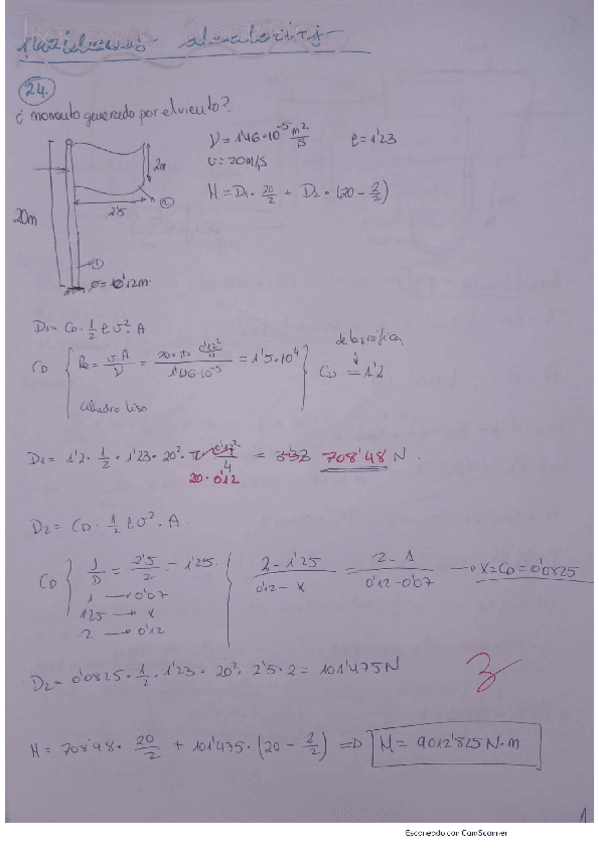 24.
¿ momento generado por el viento?
ν = 1'46·10⁻⁵ m²/s ρ = 1'23
v = 20 m/s
M = D₁ · 20/2 + D₂ · (20 - 2/2)
2m
20m
2'5
②
①
ø = 0'12m
D₁ = CD · 1/2 ρ v² · A
CD { Re = v·A/ν = 20·π·0'12²/4 / 1'46·10⁻⁵ = 1'5·10⁴ } CD = 1'2
de la gráfica
cilindro liso
D₁ = 1'2 · 1/2 · 1'23 · 20² · π 0'12²/4 = 3'33 708'48 N.
20·0'12
D₂ = CD · 1/2 ρ v² · A.
CD { l/D = 2'5/2 = 1'25 } 2 - 1'25 / 0'12 - X = 2 - 1 / 0'12 - 0'07 → X = CD = 0'0825
1 → 0'07
1'25 → x
2 → 0'12
D₂ = 0'0825 · 1/2 · 1'23 · 20² · 2'5 · 2 = 101'475 N
M = 708'48 · 20/2 + 101'475 · (20 - 2/2) ⇒ M = 9012'825 N·m
1
Escaneado con CamScanner